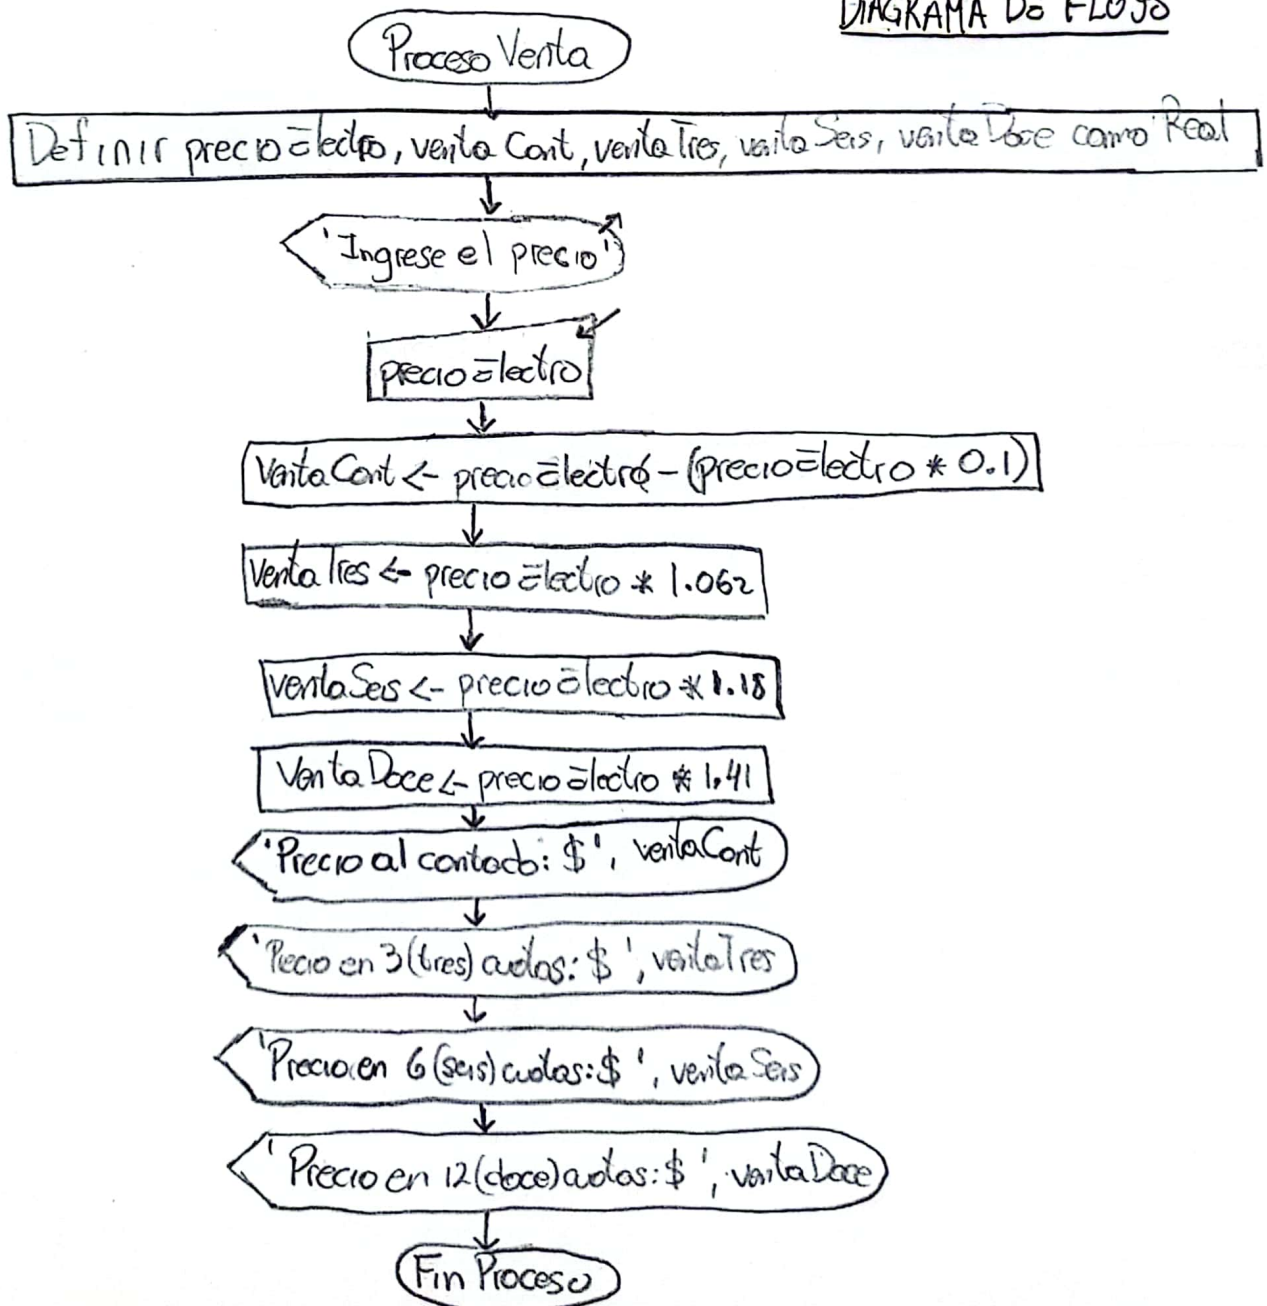 DIAGRAMA DE FLUJO
Proceso Venta
Definir precioElectro, ventaCont, ventaTres, ventaSeis, ventaDoce como Real
'Ingrese el precio'
precioElectro
VentaCont <- precioElectro - (precioElectro * 0.1)
VentaTres <- precioElectro * 1.062
ventaSeis <- precioElectro * 1.18
VentaDoce <- precioElectro * 1.41
'Precio al contado: $', ventaCont
'Pecio en 3 (tres) cuotas: $ ', ventaTres
'Precio en 6 (seis) cuotas: $ ', ventaSeis
'Precio en 12 (doce) cuotas: $ ', ventaDoce
Fin Proceso